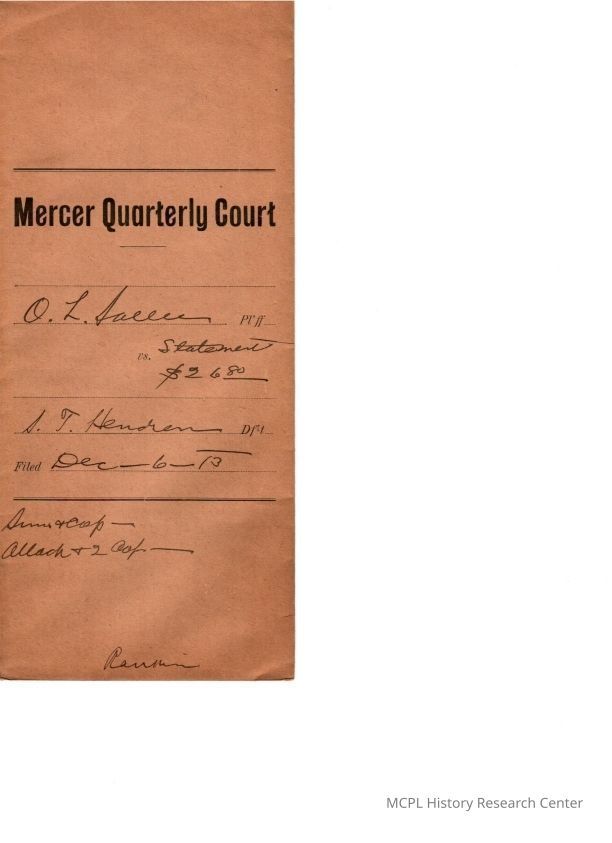 Mercer Quarterly Court
O. L. Sallee Pl'ff
vs. Statement
$26 80
S. T. Hendren Df't
Filed Dec - 6 - 13
Sum & Cop -
Attach & 2 Cop -
Rankin
MCPL History Research Center